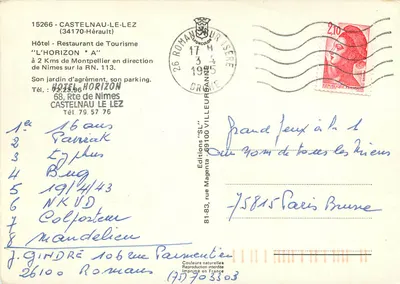 15266 - CASTELNAU-LE-LEZ
(34170-Hérault)
Hôtel - Restaurant de Tourisme
"L'HORIZON * A"
à 2 Kms de Montpellier en direction
de Nimes sur la RN. 113.
Son jardin d'agrément, son parking.
HOTEL HORIZON
68, Rte de Nimes
CASTELNAU LE LEZ
Tél 79 57 76
1 16 ans
2
3 Typhus
4 Bug
5 19/4/43
6 NKVD
7 Colporteur
8 Mandelieu
J. GINDRE 106 rue Parmentier
26100 Romans (75) 703303
Editions "SL"
81-83, rue Magenta - 69100 VILLEURBANNE
Couleurs naturelles
Reproduction interdite
Imprimé en France
26 ROMANS SUR ISERE
17 H
3-4
1985
DROME
2,10
Grand Jeux à la 1
au nom de tous les miens
75815 Paris Brune